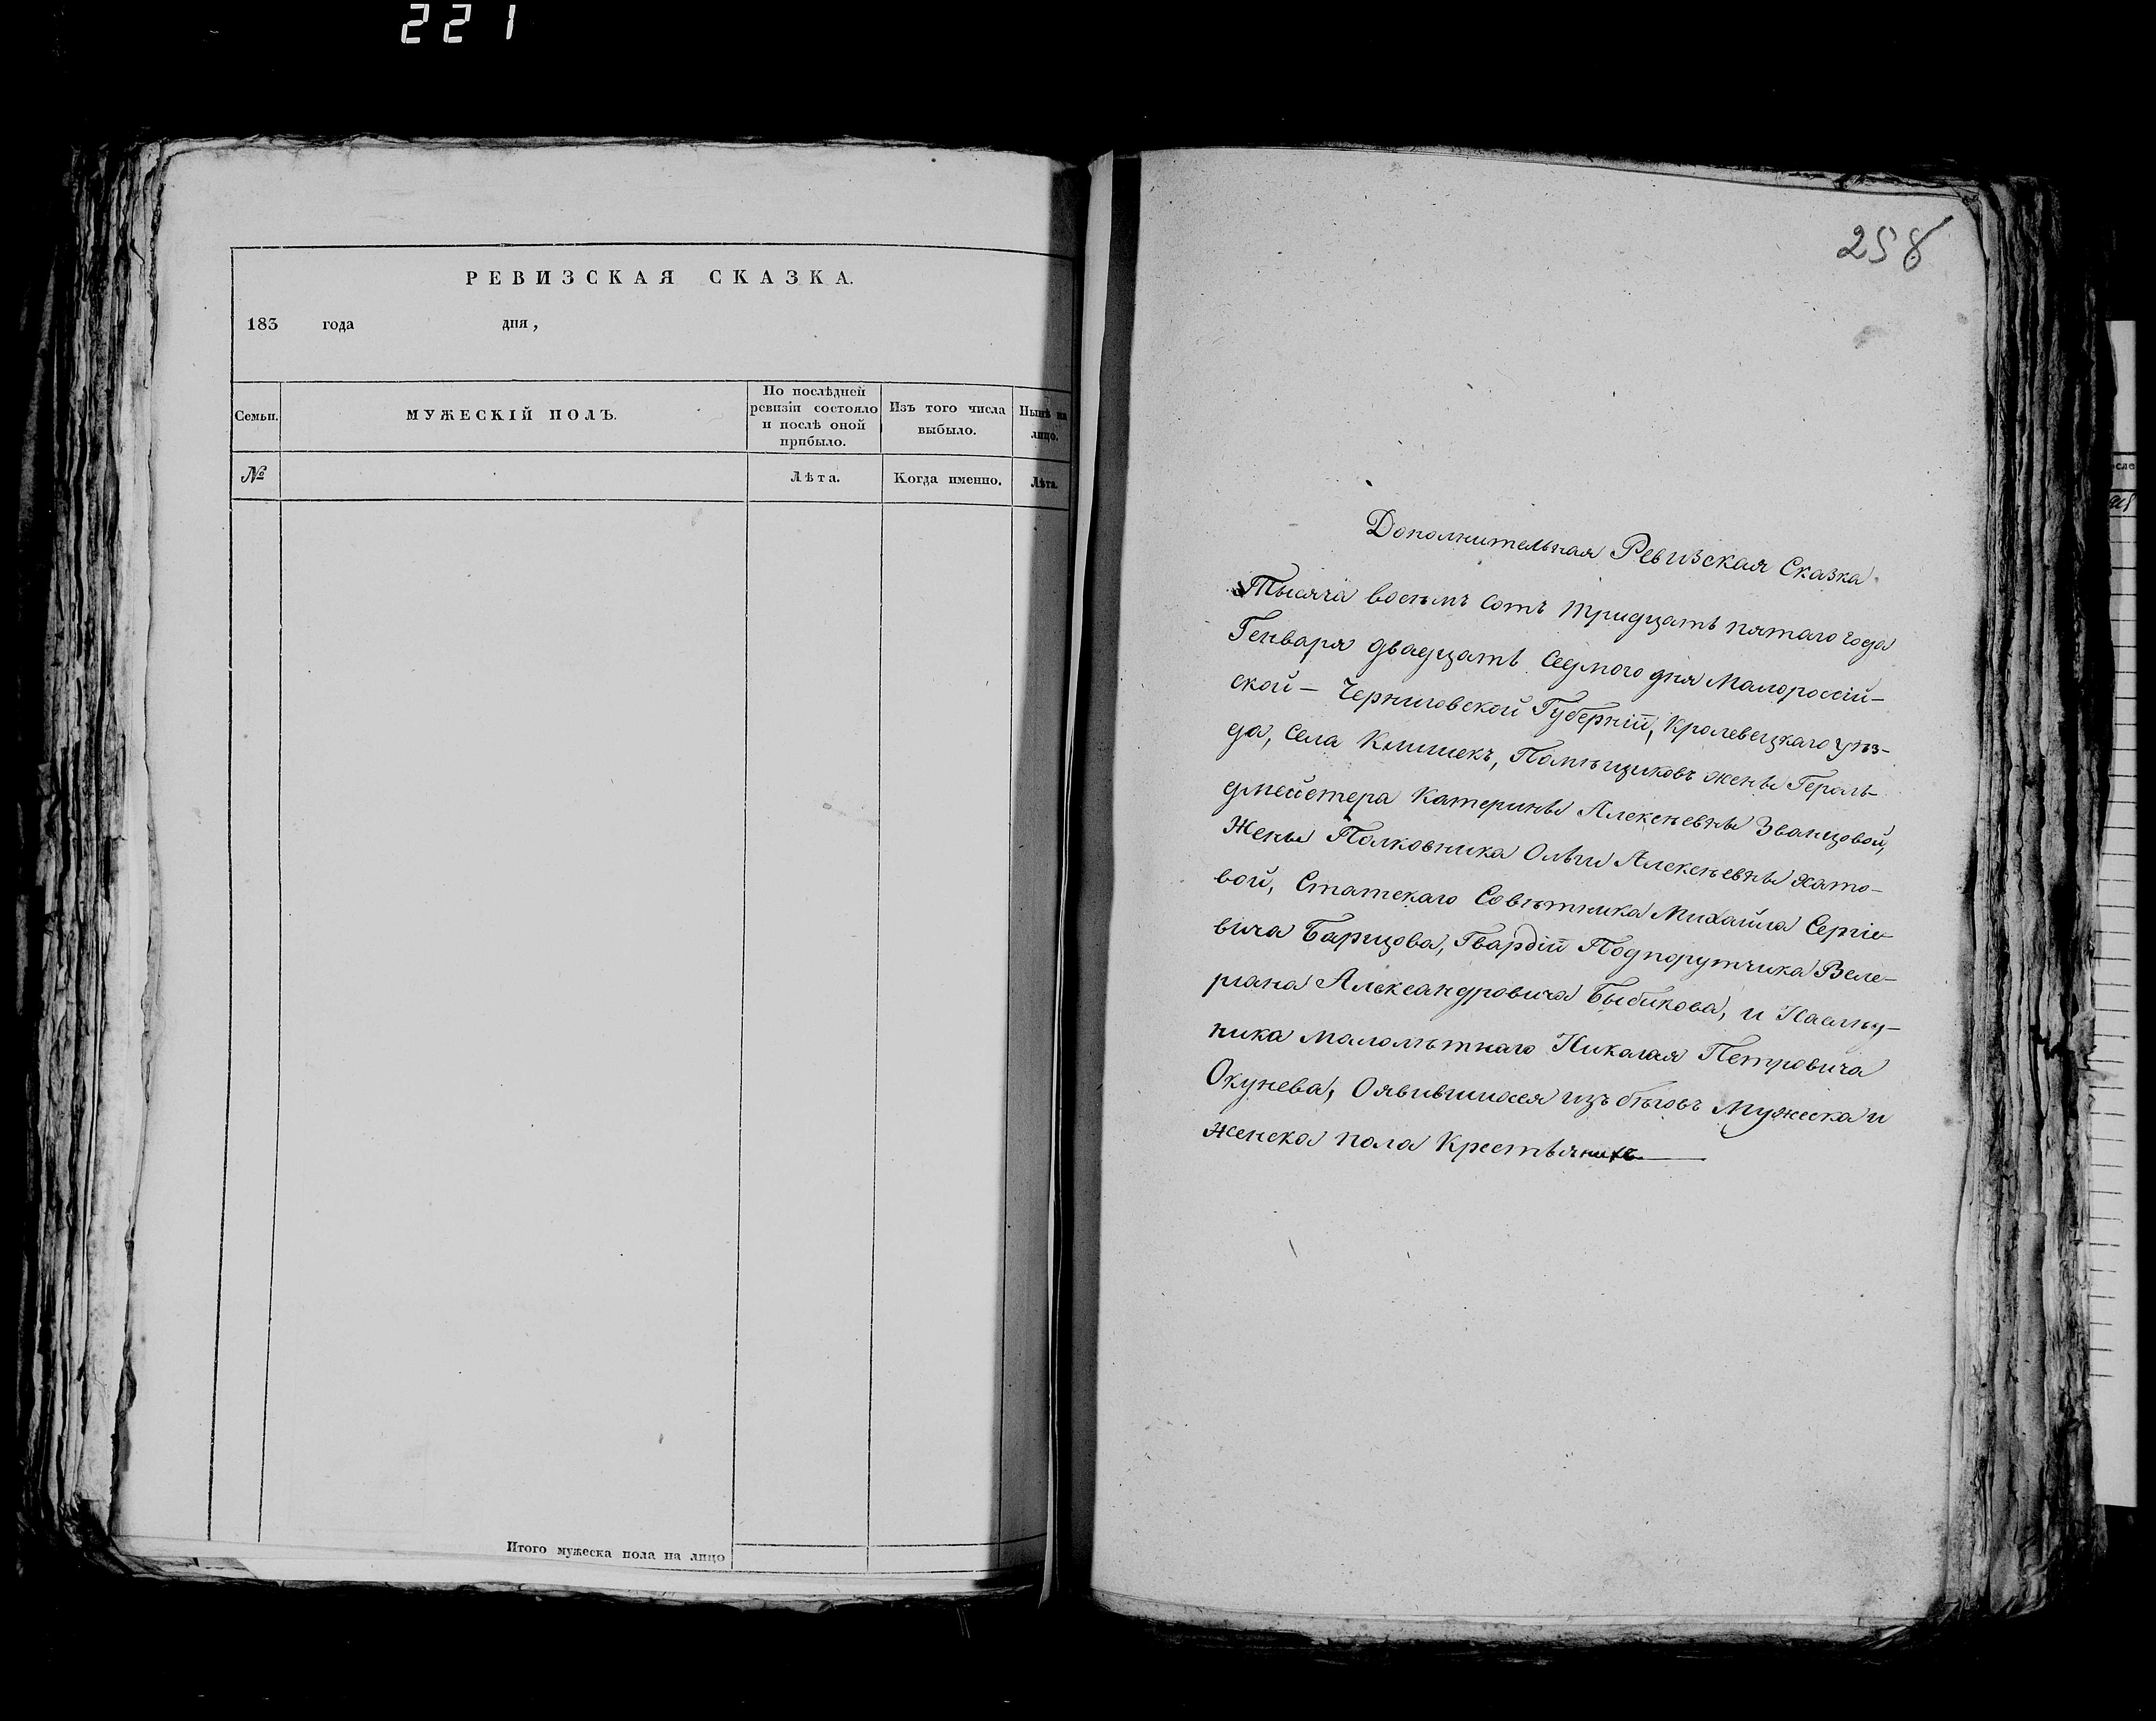 221
РЕВИЗСКАЯ СКАЗКА.
183 года дня,
Семьи.
МУЖЕСКІЙ ПОЛЪ.
По послѣдней
ревизіи состояло
и послѣ оной
прибыло.
Изъ того числа
выбыло.
Нынѣ на
лицо.
№
Лѣта.
Когда именно.
Лѣта.
Итого мужеска пола на лицо
258
Дополнительная Ревизская Сказка
Тысяча восемъ сотъ тридцать пятаго года
Генваря двадцать седмого дня Малороссій-
ской - Черниговской Губерніи, Кролевецкаго уѣз-
да, села Клишекъ, Помѣщиковъ жены Героль-
дмейстера Катерины Алексѣевны Званцовой,
Жены Полковника Ольги Алексѣевны Хато-
вой, Статскаго Совѣтника Михайла Сергіе-
вича Барщова, Гвардіи Подпорутчика Веле-
ріана Александровича Быбикова, и Наслѣд-
ника малолѣтнаго Николая Петровича
Окунева, О явившихся изъ бѣговъ мужеска и
женска пола Крестьянихъ